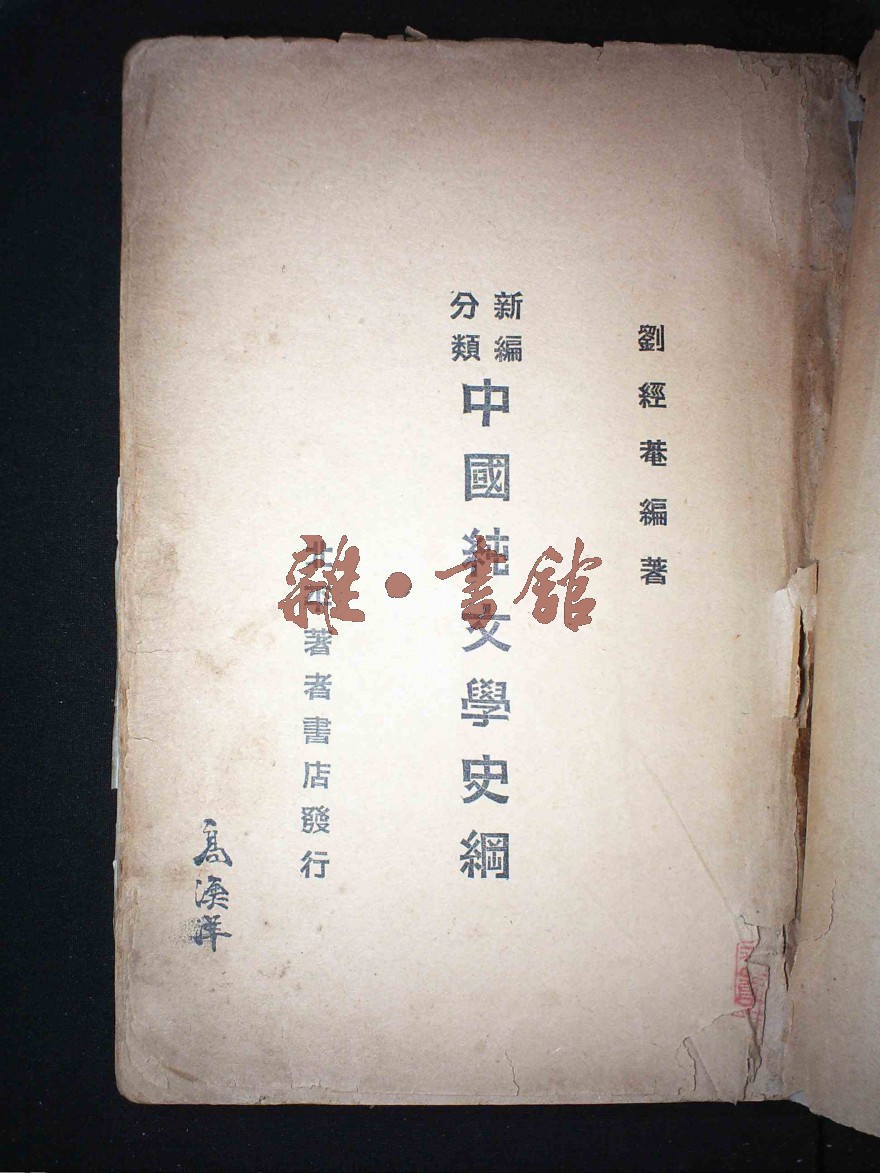 劉經菴編著
新編
分類
中國純文學史綱
北平著者書店發行
高漁洋
雜·書館